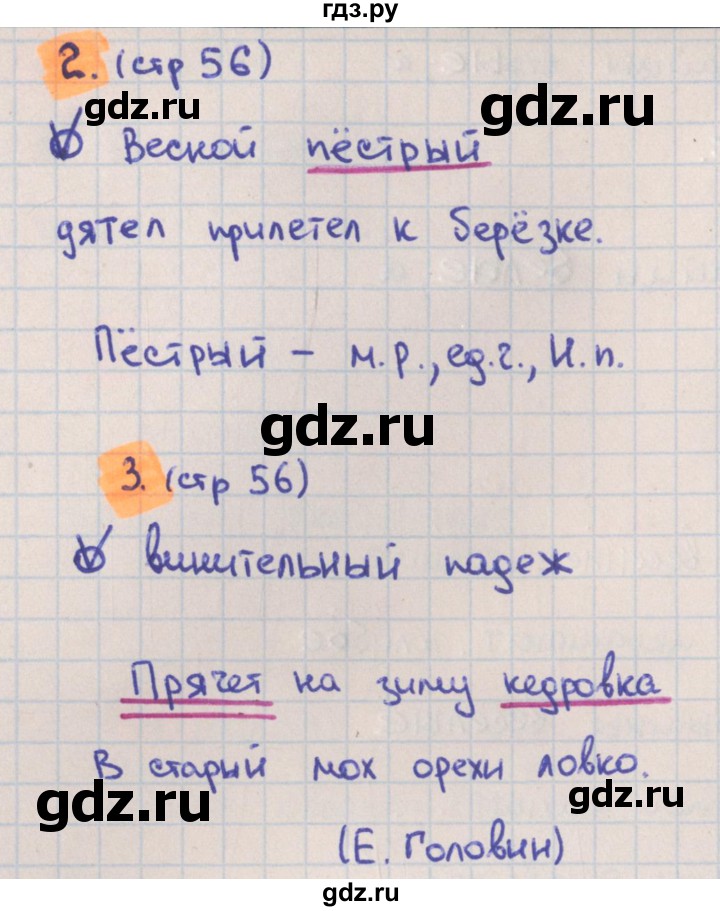 гдз.ру
2. (стр 56)
gdz.ru
gdz.ru
Веской пёстрый
дятел прилетел к берёзке.
Пёстрый – м.р., ед.г., И.п.
gdz.ru
3. (стр 56)
винительный падеж
Прячет на зиму кедровка
В старый мох орехи ловко.
gdz.ru
gdz.ru
(Е. Головин)
gdz.ru